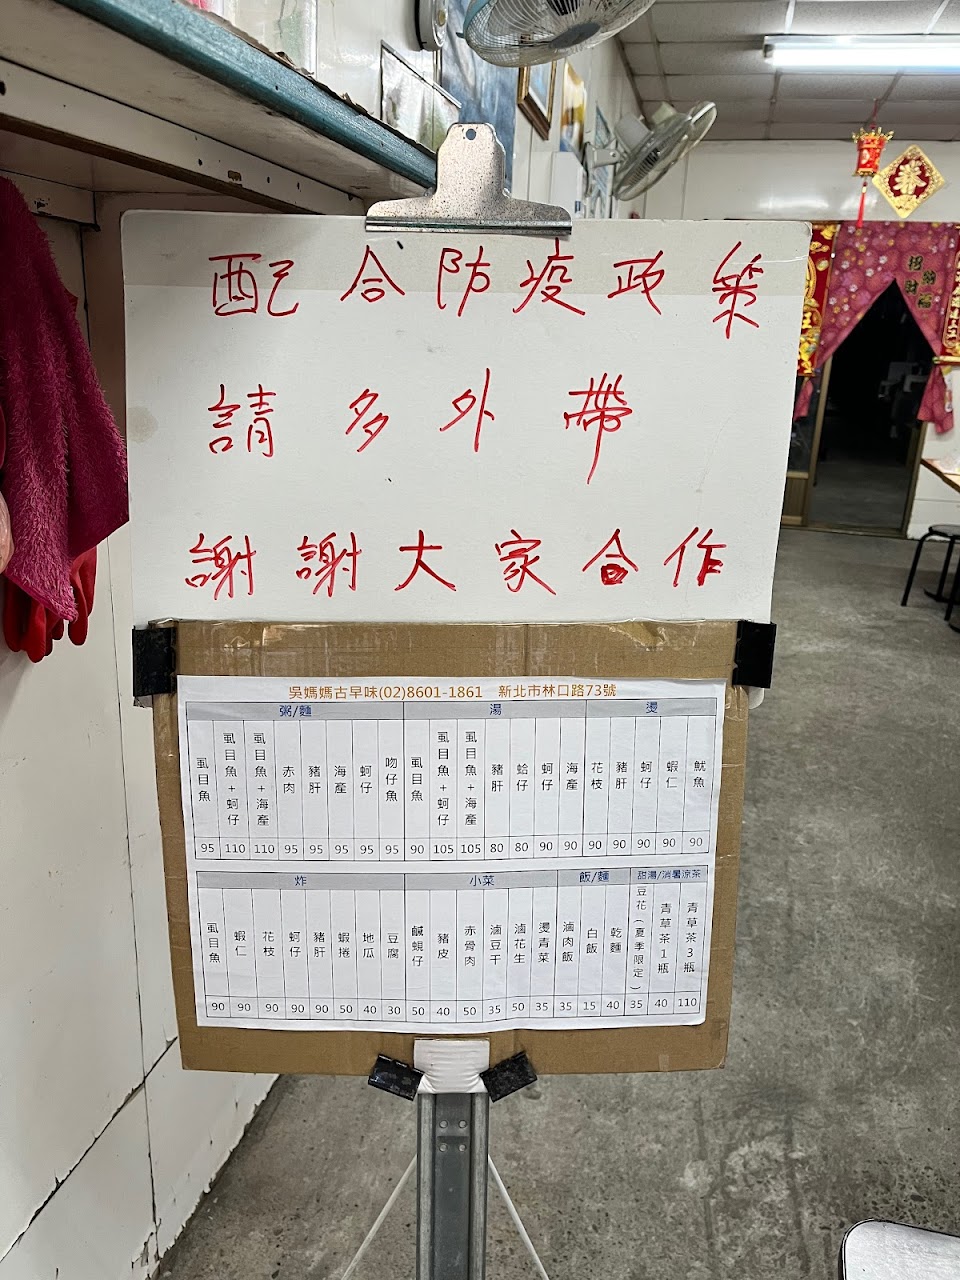 配合防疫政策
請多外帶
謝謝大家合作
吳媽媽古早味(02)8601-1861 新北市林口路73號
粥/麵 湯 燙
虱目魚 虱目魚+蚵仔 虱目魚+海產 赤肉 豬肝 海產 蚵仔 吻仔魚 虱目魚 虱目魚+蚵仔 虱目魚+海產 豬肝 蛤仔 蚵仔 海產 花枝 豬肝 蚵仔 蝦仁 魷魚
95 110 110 95 95 95 95 95 90 105 105 80 80 90 90 90 90 90 90 90
炸 小菜 飯/麵 甜湯/消暑涼茶
虱目魚 蝦仁 花枝 蚵仔 豬肝 蝦捲 地瓜 豆腐 鹹蜆仔 豬皮 赤骨肉 滷豆干 滷花生 燙青菜 滷肉飯 白飯 乾麵 豆花(夏季限定) 青草茶1瓶 青草茶3瓶
90 90 90 90 90 50 40 30 50 40 50 35 50 35 35 15 40 35 40 110
招財納福